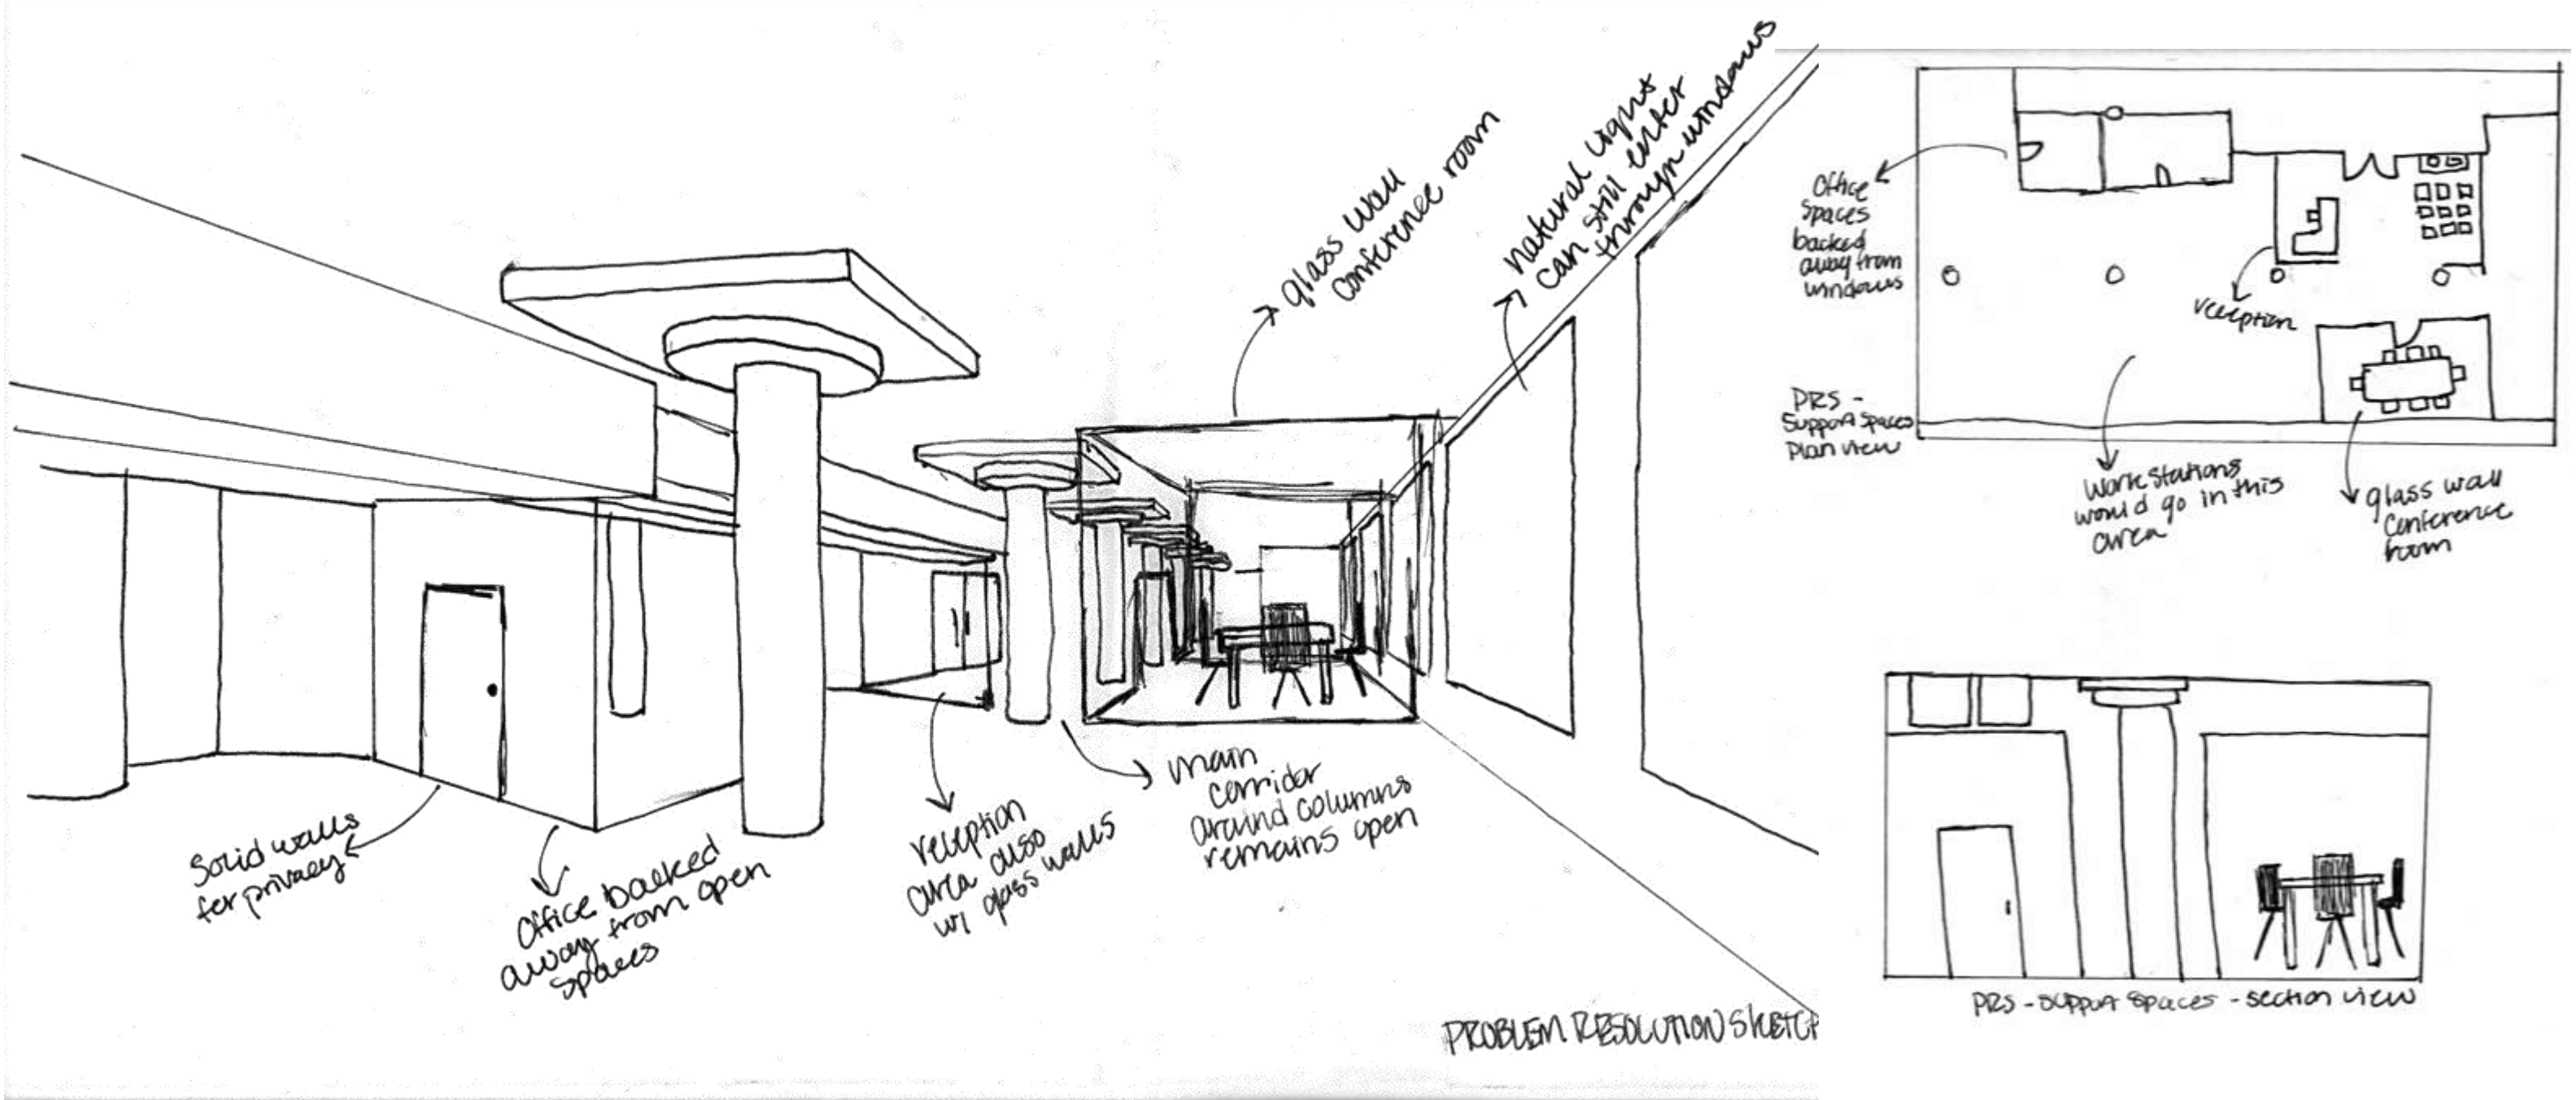 glass wall
conference room
natural light
can still enter
through windows
Solid walls
for privacy
Office backed
away from open
spaces
reception
area also
w/ glass walls
main
corridor
around columns
remains open
PROBLEM RESOLUTION SKETCH
Office
spaces
backed
away from
windows
reception
PRS -
Support Spaces
Plan view
Work stations
would go in this
area
glass wall
conference
room
PRS - Support Spaces - section view